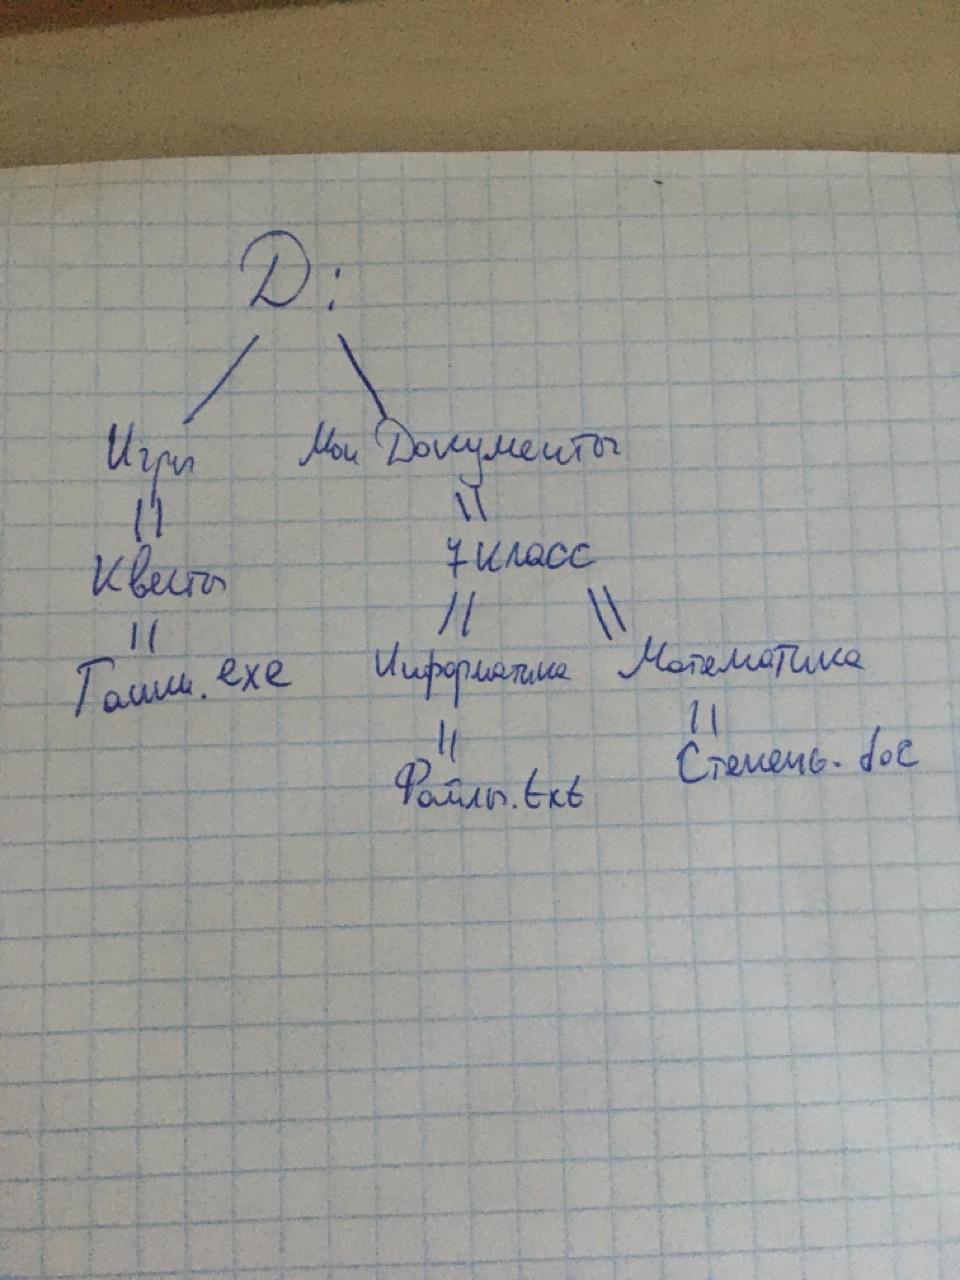 D:
Игры Мои Документы
Квесты 7 класс
Гашш.exe Информатика Математика
Файлы.txt Степень.doc